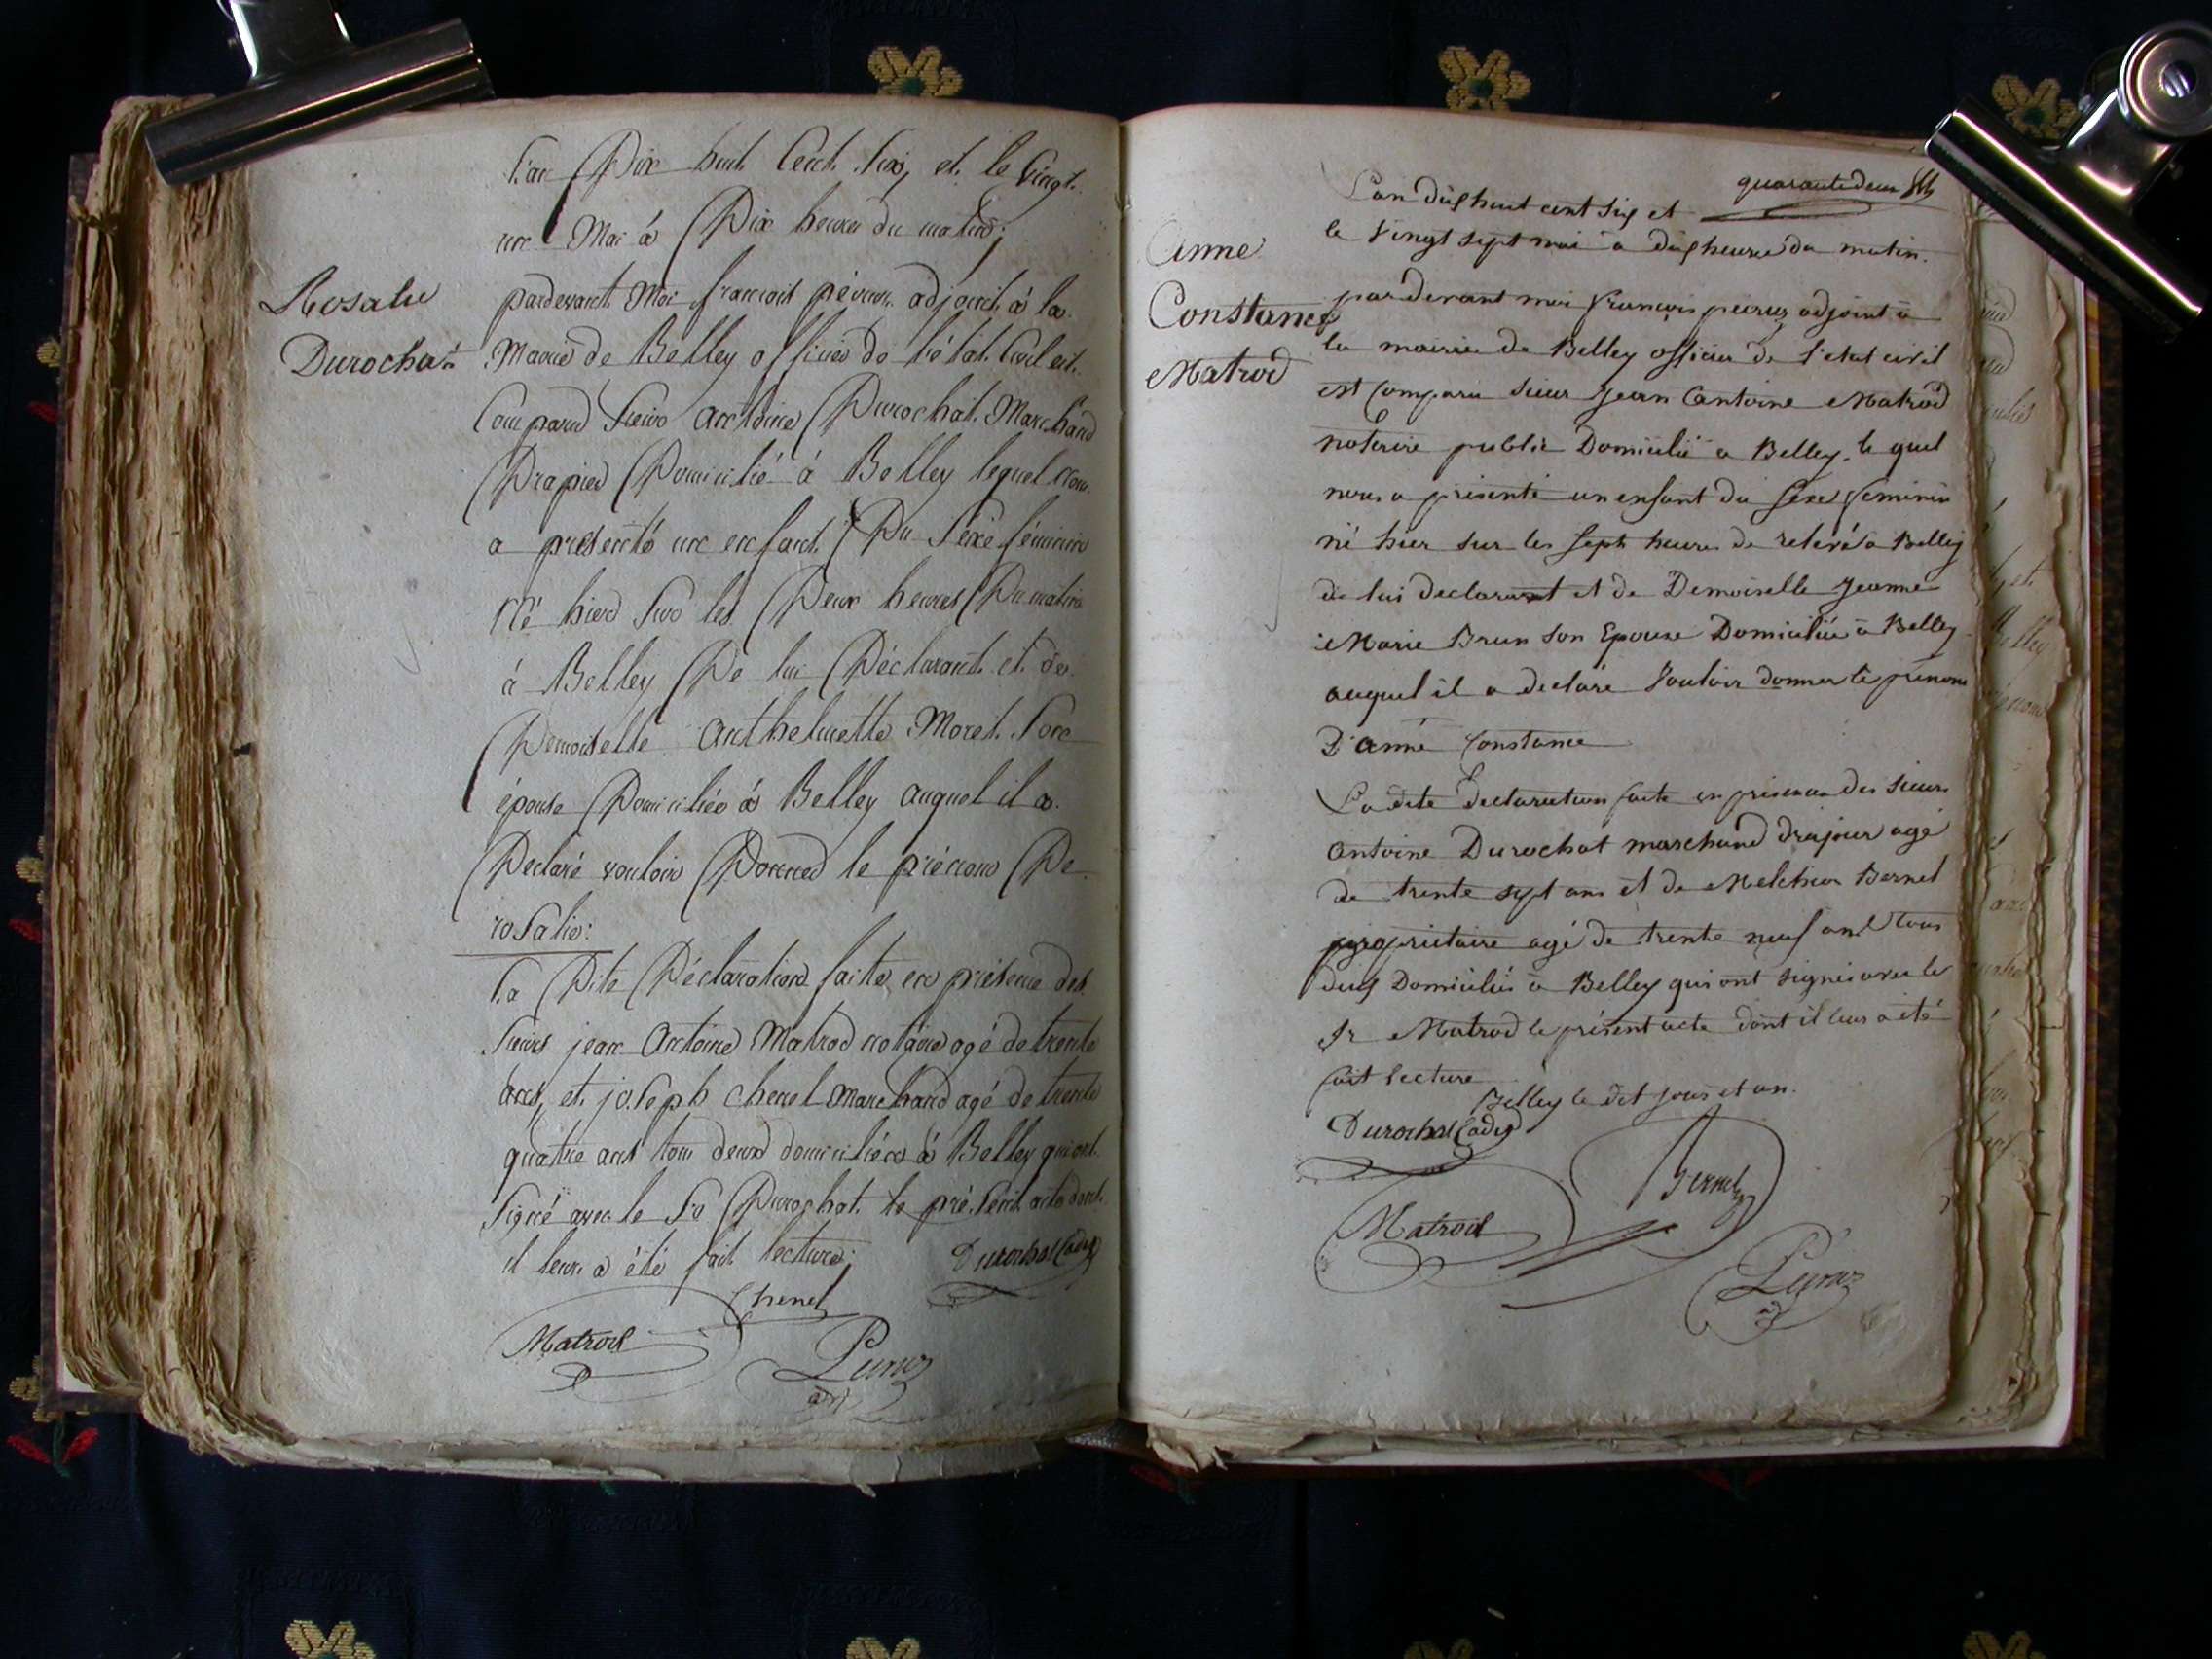 L'an Dix huit Cent Six, et le Vingt
un Mai à Dix heures du matin;
Rosalie
Durochat
pardevant Moi françois péeruz adjoint à la
Mairie de Belley officier de l'état Civil est
Comparu Sieur Antoine Durochat Marchand
Drapier Domicilié à Belley lequel nous
a présenté un enfant Du Séxe féminin
Né hier Sur les Deux heures Du matin
à Belley De lui Déclarant et de
Demoiselle Anthelmette Moret Son
épouse Domiciliée à Belley auquel il a
Declaré vouloir Donner le prénom De
roSalie:
La Dite Déclaration faite en présence des
Sieurs jean Antoine Matrod notaire agé de trente
ans, et joseph chenel Marchand agé de trente
quatre ans tous deux domiciliés à Belley qui ont
Signé avec le Sr Durochat le préSent acte dont
il leur a été fait lecture;
Durochat Cadet
Chenel
Matrod
Péeruz
adj
quarante deux
L'an dix huit cent six et
le vingt sept mai a dix heures du matin.
Anne
Constance
Matrod
par devant moi françois péeruz adjoint à
la mairie de Belley officier de l'etat civil
est Comparu sieur Jean Antoine Matrod
notaire public Domicilié a Belley, le quel
nous a présenté un enfant du sexe feminin
né hier sur les sept heures de relevé a Belley
de lui declarant et de Demoiselle Jeanne
Marie Brun son Epouse Domiciliée à Belley
auquel il a declaré Vouloir donner le prénom
D'anne Constance
La dite declaration faite en présence des sieurs
Antoine Durochat marchand drapier agé
de trente sept ans et de Melchior Bernet
propriétaire agé de trente neuf ans tous
deux Domiciliés à Belley qui ont signés avec le
Sr Matrod le présent acte dont il leur a été
fait lecture
Belley le dit jour et an.
Durochat Cadet
Bernet
Matrod
Péeruz
adj